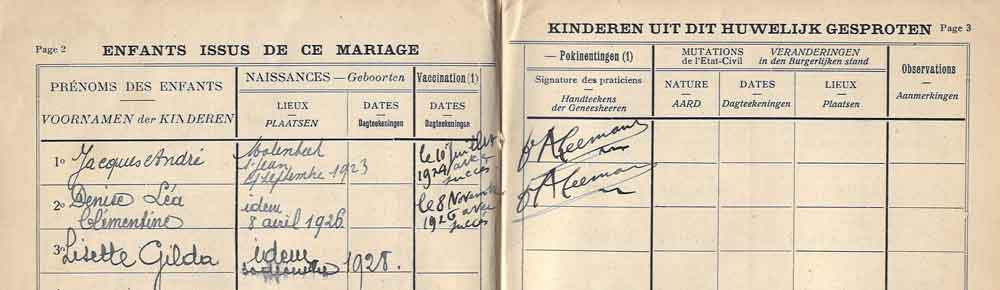 Page 2 ENFANTS ISSUS DE CE MARIAGE
KINDEREN UIT DIT HUWELIJK GESPROTEN Page 3
PRÉNOMS DES ENFANTS
VOORNAMEN der KINDEREN
NAISSANCES — Geboorten
LIEUX
PLAATSEN
DATES
Dagteekeningen
Vaccination (1)
DATES
Dagteekeningen
— Pokinentingen (1)
Signature des praticiens
Handteekens
der Geneesheeren
MUTATIONS
de l'Etat-Civil
VERANDERINGEN
in den Burgerlijken stand
NATURE
AARD
DATES
Dagteekeningen
LIEUX
Plaatsen
Observations
Aanmerkingen
1° Jacques André
Molenbeek
St Jean
septembre 1923
le 10 juillet
1924 avec
succès
2° Denise Léa
Clémentine
idem
8 avril 1926
le 8 Novembre
1926 avec
succès
3° Lisette Gilda
idem
1928.